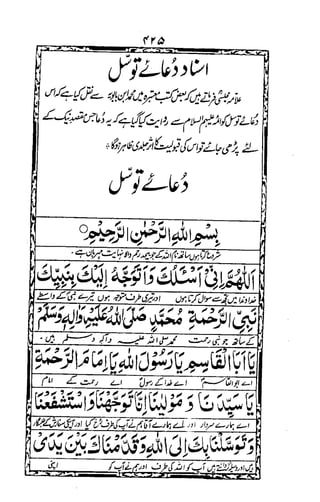 ۴۲۵
اسناد دُعائے توسّل
علامہ مجلسیؒ فرماتے ہیں کہ بعض کتب معتبرہ میں محمد ابن بابویہ سے نقل کیا ہے کہ اس
دُعائے توسل کو ائمہ علیہم السلام سے روایت کیا گیا ہے کہ یہ دُعا جس مقصد نیک کے
لئے پڑھی جائے تو اس کی قبولیت کا اثر جلدی ظاہر ہوگا
دُعائے توسّل
بِسْمِ اللّٰهِ الرَّحْمٰنِ الرَّحِيْمِ
شروع کرتا ہوں ساتھ نام اللہ کے جو بیحد رحم والا نہایت مہربان ہے
اَللّٰهُمَّ اِنِّيْ اَسْئَلُكَ وَاَتَوَجَّهُ اِلَيْكَ بِنَبِيِّكَ
خداوندا میں تجھ سے سوال کرتا ہوں اور تیری طرف متوجہ ہوں تیرے نبی کے واسطے
نَبِيِّ الرَّحْمَةِ مُحَمَّدٍ صَلَّى اللّٰهُ عَلَيْهِ وَاٰلِهٖ وَسَلَّمَ
کے ساتھ جو نبی رحمت محمد صلی اللہ علیہ وآلہ وسلم ہیں
يَا اَبَا الْقَاسِمِ يَا رَسُوْلَ اللّٰهِ يَا اِمَامَ الرَّحْمَةِ
اے ابوالقاسم اے خدا کے رسول اے رحمت کے امام
يَا سَيِّدَنَا وَمَوْلٰينَا اِنَّا تَوَجَّهْنَا وَاسْتَشْفَعْنَا
اے ہمارے سردار اور اے ہمارے آقا ہم نے آپ کی طرف رُخ کیا اور
وَتَوَسَّلْنَا بِكَ اِلَى اللّٰهِ وَقَدَّمْنَاكَ بَيْنَ يَدَيْ
ہیں آپ کو اللہ کی طرف اور ہم نے آپ کو اپنی